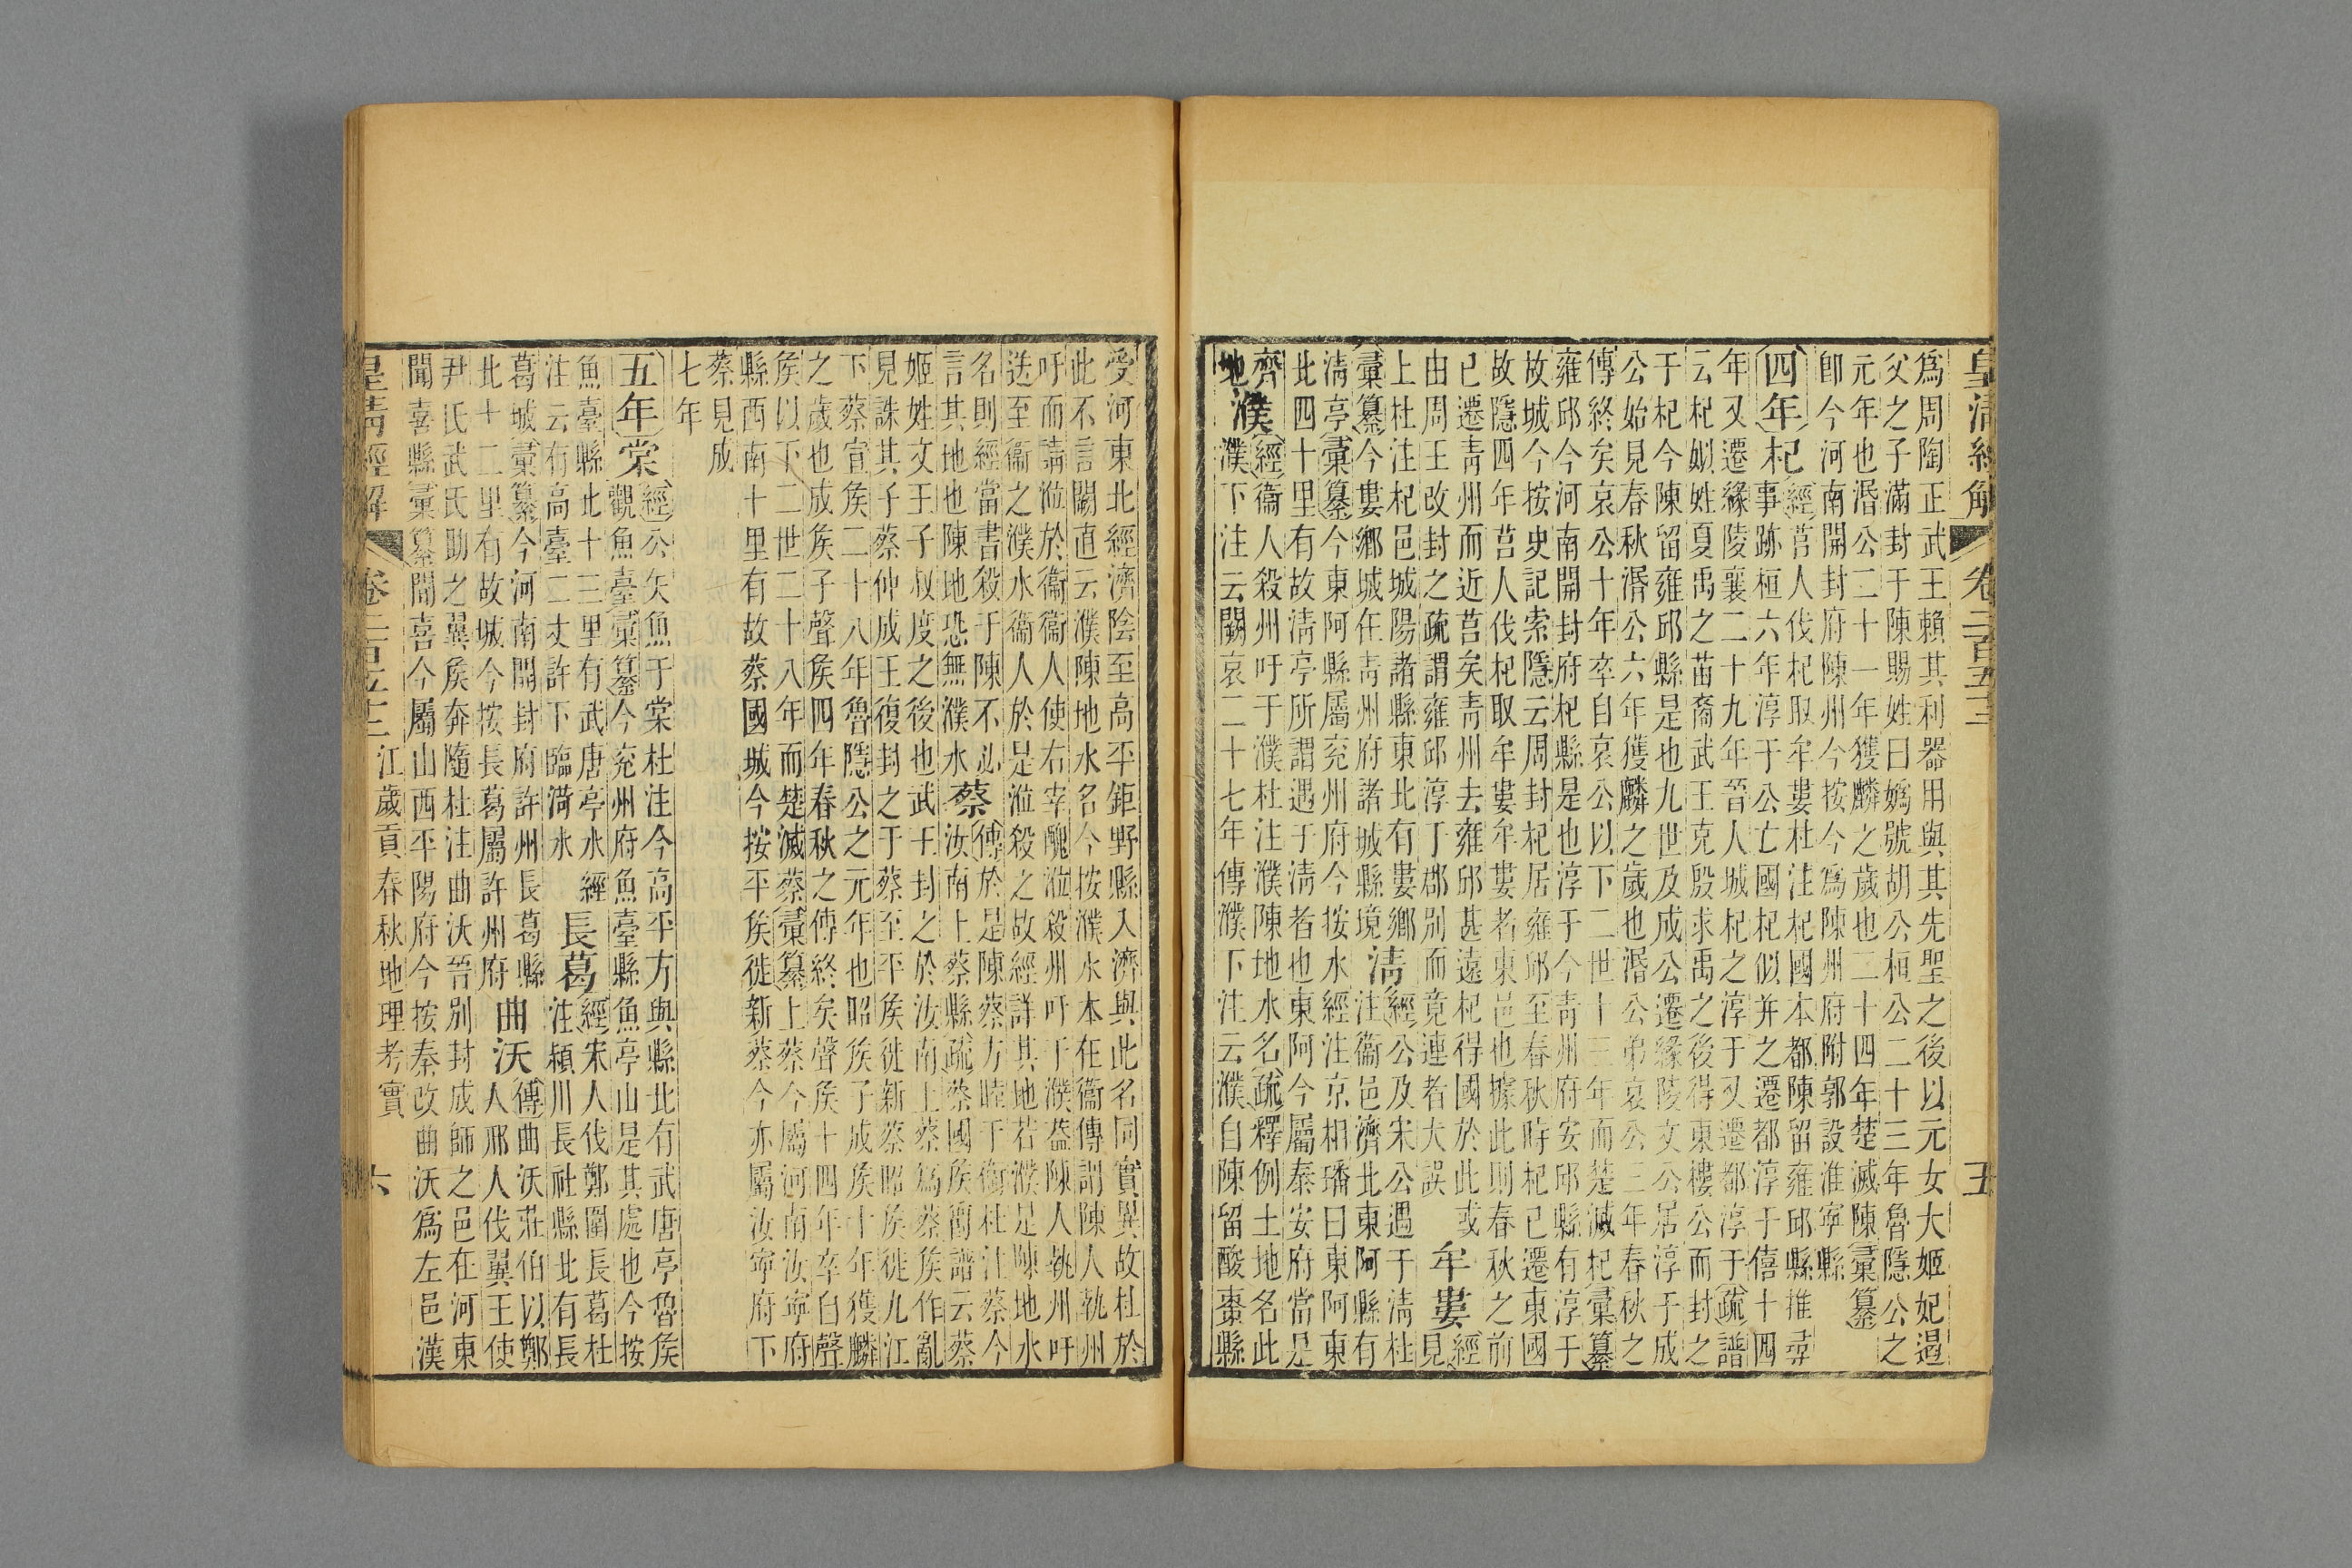 皇清經解 卷二百五十三 五
爲周陶正武王賴其利器用與其先聖之後以元女大姬妃遏
父之子滿封于陳賜姓曰嬀號胡公桓公二十三年魯隱公之
元年也湣公二十一年獲麟之歲也二十四年楚滅陳彙纂
卽今河南開封府陳州今按今爲陳州府附郭設淮寧縣
四年 杞 經莒人伐杞取牟婁杜注杞國本都陳留雍邱縣推尋
事跡桓六年淳于公亡國杞似并之遷都淳于僖十四
年又遷緣陵襄二十九年晉人城杞之淳于又遷都淳于疏譜
云杞姒姓夏禹之苗裔武王克殷求禹之後得東樓公而封之
于杞今陳留雍邱縣是也九世及成公遷緣陵文公居淳于成
公始見春秋湣公六年獲麟之歲也湣公弟哀公三年春秋之
傳終矣哀公十年卒自哀公以下二世十三年而楚滅杞彙纂
雍邱今河南開封府杞縣是也淳于今青州府安邱縣有淳于
故城今按史記索隱云周封杞居雍邱至春秋時杞已遷東國
故隱四年莒人伐杞取牟婁牟婁者東邑也據此則春秋之前
已遷青州而近莒矣青州去雍邱甚遠杞得國於此或
由周王改封之疏謂雍邱淳于郡別而竟連者大誤
牟婁 經見
上杜注杞邑城陽諸縣東北有婁鄉
彙纂今婁鄉城在青州府諸城縣境
淸 經公及宋公遇于淸杜
注衞邑濟北東阿縣有
淸亭彙纂今東阿縣屬兖州府今按水經注京相璠曰東阿東
北四十里有故淸亭所謂遇于淸者也東阿今屬泰安府當是
齊地
濮 經衞人殺州吁于濮杜注濮陳地水名疏釋例土地名此
濮下注云闕哀二十七年傳濮下注云濮自陳留酸棗縣
受河東北經濟陰至高平鉅野縣入濟與此名同實異故杜於
此不言闕直云濮陳地水名今按濮水本在衞傳謂陳人執州
吁而請涖於衞衞人使右宰醜涖殺州吁于濮葢陳人執州吁
送至衞之濮水衞人於是涖殺之故經詳其地若濮是陳地水
名則經當書殺于陳不必
言其地也陳地恐無濮水
蔡 傳於是陳蔡方睦于衞杜注蔡今
汝南上蔡縣疏蔡國侯爵譜云蔡
姬姓文王子叔度之後也武王封之於汝南上蔡爲蔡侯作亂
見誅其子蔡仲成王復封之于蔡至平侯徙新蔡昭侯徙九江
下蔡宣侯二十八年魯隱公之元年也昭侯子成侯十年獲麟
之歲也成侯子聲侯四年春秋之傳終矣聲侯十四年卒自聲
侯以下二世二十八年而楚滅蔡彙纂上蔡今屬河南汝寧府
縣西南十里有故蔡國城今按平侯徙新蔡今亦屬汝寧府下
蔡見成
七年
五年 棠 經公矢魚于棠杜注今高平方與縣北有武唐亭魯侯
觀魚臺彙纂今兖州府魚臺縣魚亭山是其處也今按
魚臺縣北十三里有武唐亭水經
注云有高臺二丈許下臨菏水
長葛 經宋人伐鄭圍長葛杜
注潁川長社縣北有長
葛城彙纂今河南開封府許州長葛縣
北十二里有故城今按長葛屬許州府
曲沃 傳曲沃莊伯以鄭
人邢人伐翼王使
尹氏武氏助之翼侯奔隨杜注曲沃晉別封成師之邑在河東
聞喜縣彙纂聞喜今屬山西平陽府今按秦改曲沃爲左邑漢
皇清經解 卷二百五十三 江歲貢春秋地理考實 六